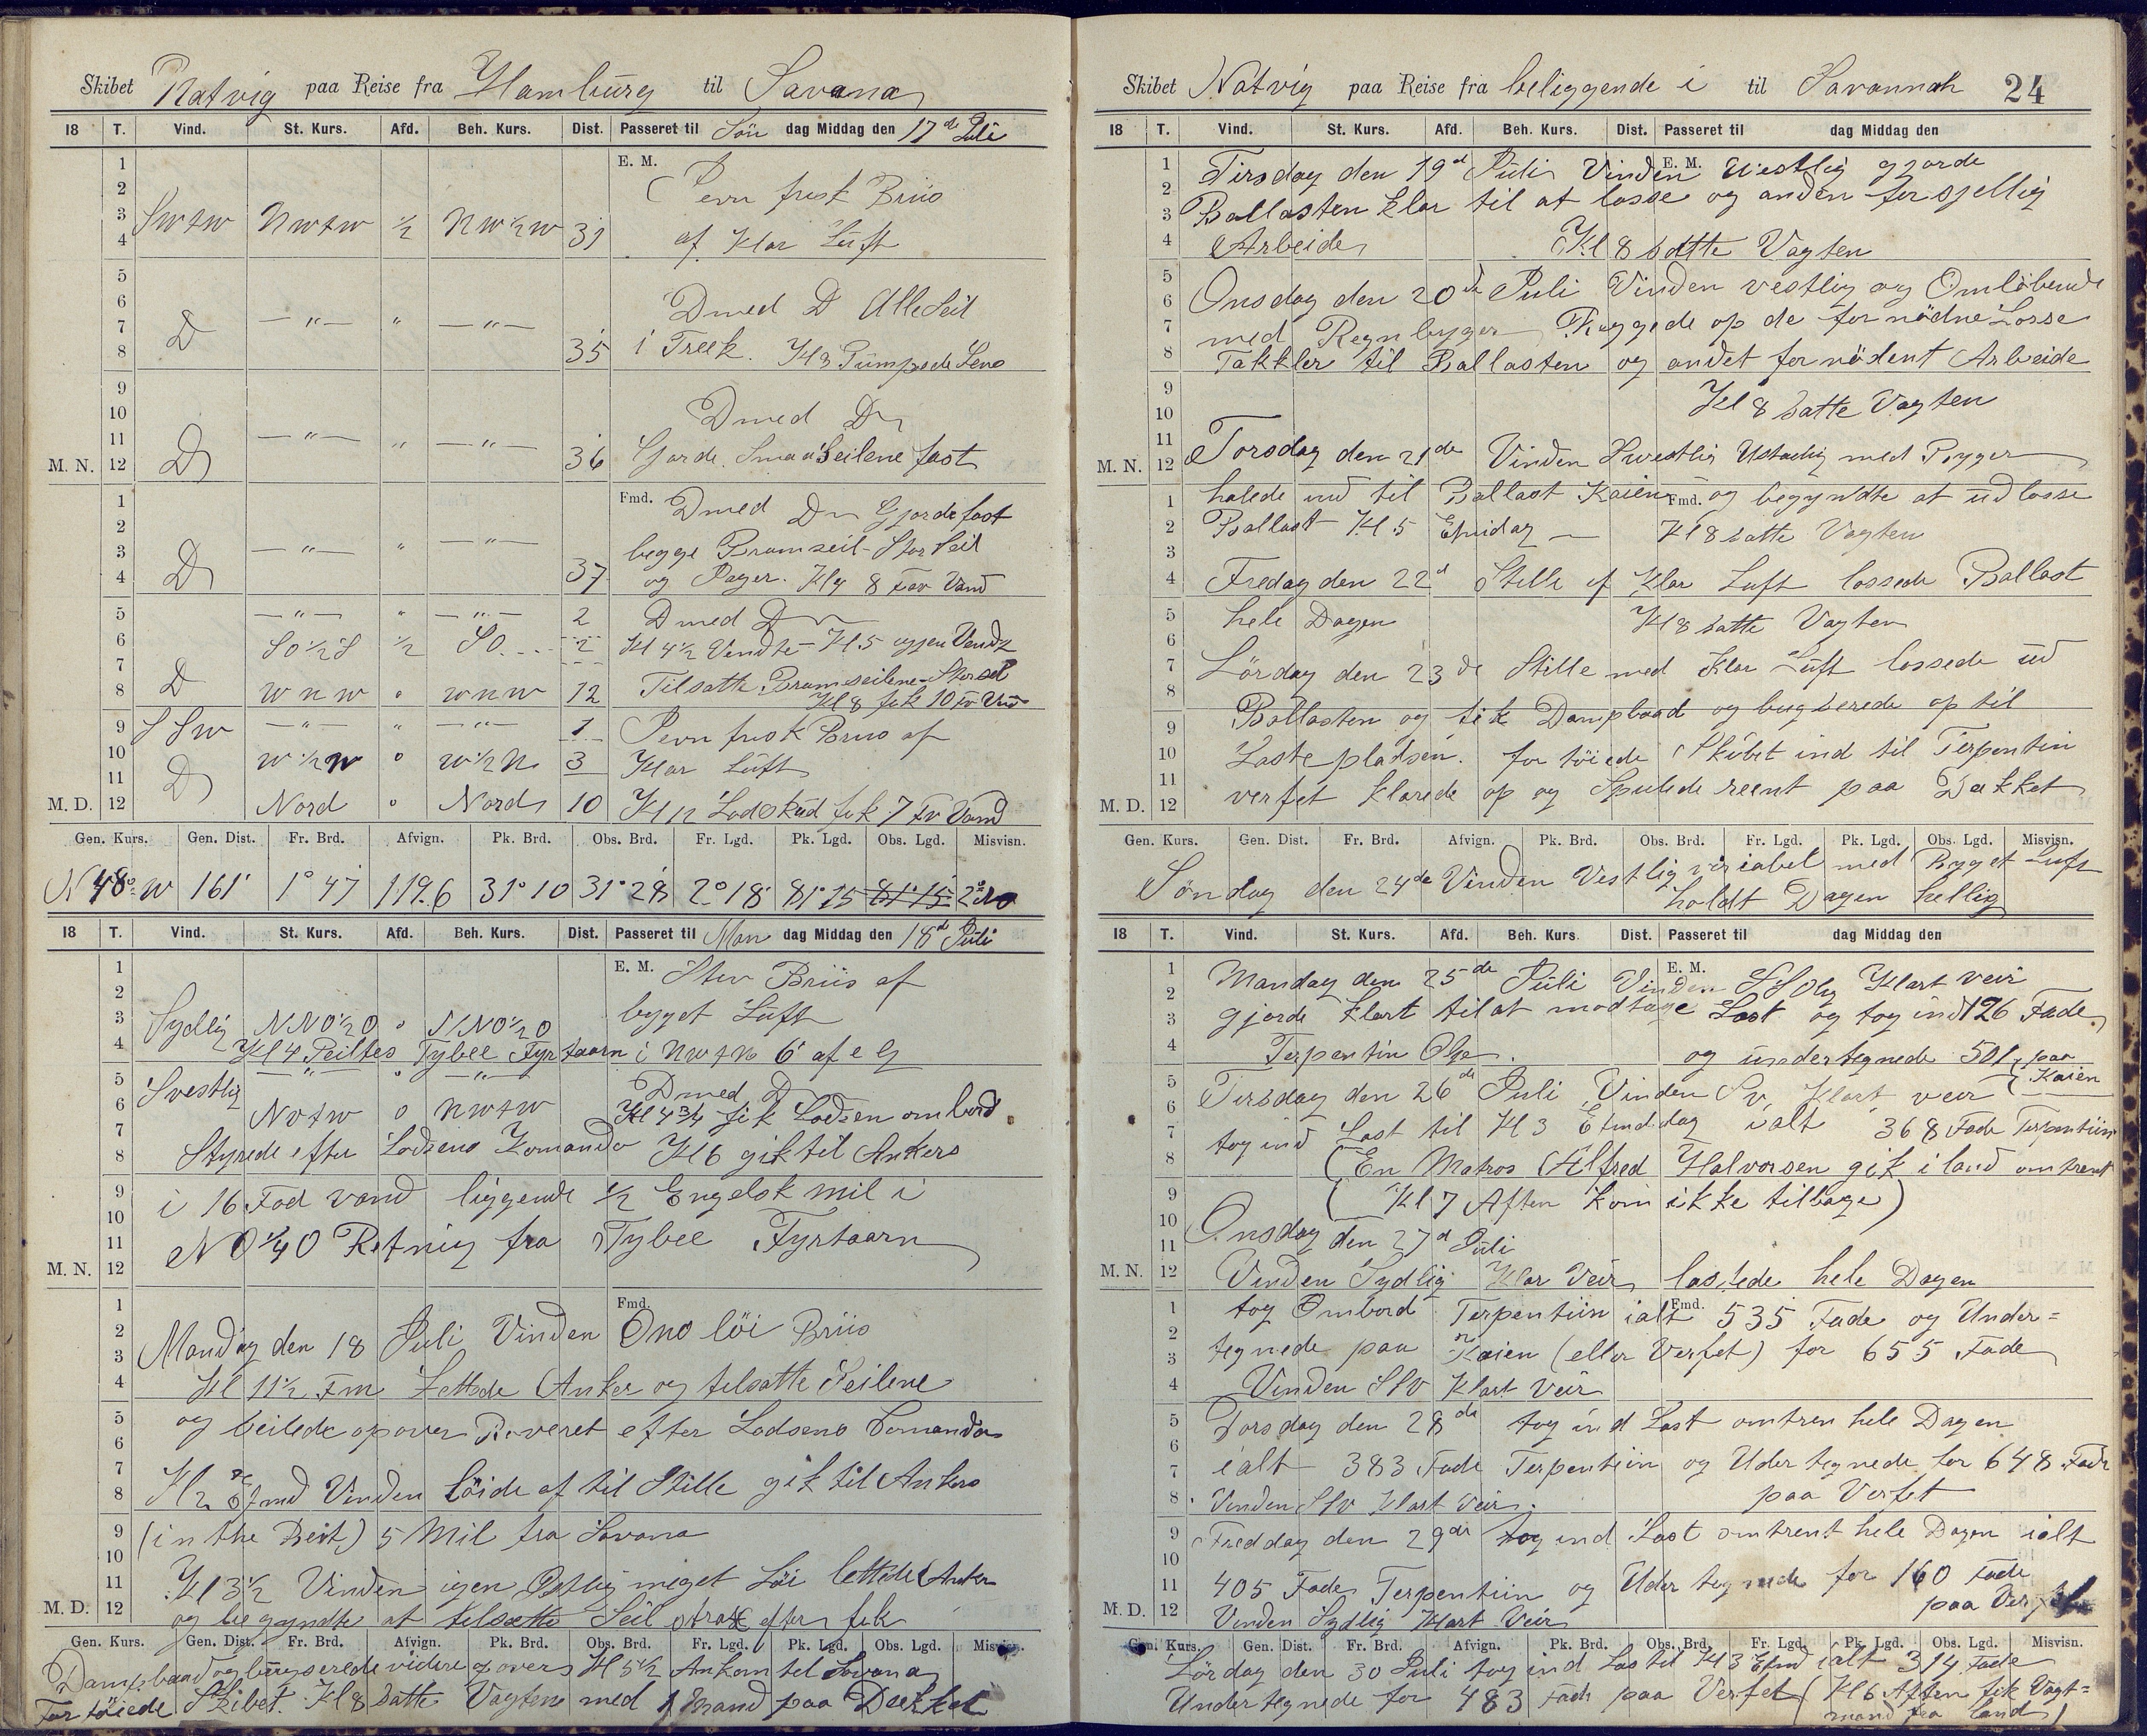 Skibet Natvig paa Reise fra Hamburg til Savana
18 T. Vind. St. Kurs. Afd. Beh. Kurs. Dist. Passeret til Søn dag Middag den 17de Juli
E. M.
1 Jevn frisk Briis
2
3 SWtW NWtW ½ NW½W 31 af Klar Luft
4
5
6 D med D Alle Seil
7 D —"— " —"— 35 i Træk. Kl 3 Pumpede Lens
8
9
10 D med D
11 D —"— " —"— 36 Gjorde Smaa Seilene fast
M. N. 12
Fmd.
1 D med D Gjorde fast
2 begge Bramseil - Stor Seil
3 D —"— " —"— 37 og Jager. Kl 4 8 Fav Vand
4
5 —"— " —"— 2 D med D
6 SO½S ½ SO 2 Kl 4½ Vendte - Kl 5 igjen Vendt
7 D WNW " WNW 12 Tilsatte Bramseilene - Storseil
8 Kl 8 fik 10 Fv Vand
9 SSW —"— " —"— 1 Jevn frisk Briis af
10 D W½N o W½N 3 Klar Luft
11
M. D. 12 Nord o Nord 10 Kl 12 Lodskud fik 7 Fv Vand
Gen. Kurs. Gen. Dist. Fr. Brd. Afvign. Pk. Brd. Obs. Brd. Fr. Lgd. Pk. Lgd. Obs. Lgd. Misvisn.
N 48° W 161' 1° 47 119.6 31° 10 31° 28 2° 18' 81° 15 81° 15
18 T. Vind. St. Kurs. Afd. Beh. Kurs. Dist. Passeret til Man dag Middag den 18d Juli
E. M.
1 Stiv Briis af
2 byget Luft
3 Sydlig NNO½O o NNO½O
4 Kl 4 Peiltes Tybee Fyrtaarn i NWtN 6' af
5 Svestlig —"— " —"— D med D
6 NWtW o NWtW Kl 4¾ fik Lodsen ombord
7 Styrede efter Lodsens Komando Kl 6 gik til Ankers
8
9 i 16 Fod vand liggende ½ Engelsk mil i
10
11 NO¼O Retnig fra Tybee Fyrtaarn
M. N. 12
Fmd.
1
2 Mandag den 18 Juli Vinden Ono løi Briis
3
4 Kl 11½ Fm Lettede Anker og tilsatte Seilene
5 og Seilede opover Reveret efter Lodsens Comando
6
7 Kl 2 Efmd Vinden Løide af til Stille gik til Ankers
8
9 (in the Beit) 5 Mil fra Savana
10
11 Kl 3½ Vinden igen Østlig miget Løi lettede Anker
M. D. 12 og begyndte at tilsætte Seil strax efter fik
Gen. Kurs. Gen. Dist. Fr. Brd. Afvign. Pk. Brd. Obs. Brd. Fr. Lgd. Pk. Lgd. Obs. Lgd. Misvisn.
Dampbaad og bugserede videre opover Kl 5½ Ankom til Savana
Fortøiede Skibet. Kl 8 satte Vagten med 1 Mand paa Dækket
Skibet Natvig paa Reise fra beliggende i til Savannah 24
18 T. Vind. St. Kurs. Afd. Beh. Kurs. Dist. Passeret til dag Middag den
E. M.
1 Tirsdag den 19d Juli Vinden Vestlig gjorde
2 Ballasten klar til at losse og anden forsjellig
3
4 Arbeide Kl 8 satte Vagten
5
6 Onsdag den 20de Juli Vinden vestlig og Omløbende
7 med Regnbyger Riggede op de fornødne Losse
8 Takkler til Ballasten og andet fornødent Arbeide
9
10 Kl 8 satte Vagten
11
M. N. 12 Torsdag den 21de Vinden Svestlig Ustadig med Byger
Fmd.
1 halede ind til Ballast Kaien og begyndte at udlosse
2 Ballast Kl 5 Efmidag — Kl 8 satte Vagten
3
4 Fredag den 22d Stille af Klar Luft lossede Ballast
5 hele Dagen Kl 8 satte Vagten
6
7 Lørdag den 23de Stille med Klar Luft lossede ud
8
9 Ballasten og fik Dampbaad og bugserede op til
10 Lastepladsen. fortøiede Skibet ind til Terpentin
11
M. D. 12 verfet klarede op og Spulede reent paa Dækket
Gen. Kurs. Gen. Dist. Fr. Brd. Afvign. Pk. Brd. Obs. Brd. Fr. Lgd. Pk. Lgd. Obs. Lgd. Misvisn.
Søndag den 24de Vinden Vestlig variabel med Byget Luft
holdt Dagen hellig
18 T. Vind. St. Kurs. Afd. Beh. Kurs. Dist. Passeret til dag Middag den
E. M.
1 Mandag den 25de Juli Vinden SSO Klart veir
2
3 gjorde klart til at modtage Last og tog ind 126 Fade
4 Terpentin Olje. og undertegnede 501 paa
5 Kaien
6 Tirsdag den 26de Juli Vinden Sv Klart veir
7 tog ind Last til Kl 3 Efmddag ialt 368 Fade Terpentiin
8 (En Matros Alfred Halvorsen gik i land omtrent
9 Kl 7 Aften kom ikke tilbage)
10
11 Onsdag den 27d Juli
M. N. 12 Vinden Sydlig Klar Veir lastede hele Dagen
Fmd.
1 tog Ombord Terpentiin ialt 535 Fade og Under=
2
3 tegnede paa Kaien (eller Verfet) for 655 Fade
4 Vinden SSV Klart Veir
5 Torsdag den 28de tog ind Last omtren hele Dagen
6
7 ialt 383 Fade Terpentiin og Udertegnede for 648 Fade
8 Vinden SSV Klart Veir. paa Verfet
9 Freddag den 29de tog ind Last omtrent hele Dagen ialt
10
11 405 Fade Terpentiin og Udertegnede for 160 Fade
paa Verfet
M. D. 12 Vinden Sydlig Klart Veir
Gen. Kurs. Gen. Dist. Fr. Brd. Afvign. Pk. Brd. Obs. Brd. Fr. Lgd. Pk. Lgd. Obs. Lgd. Misvisn.
Lørdag den 30 Juli tog ind Las til Kl 3 Efmd ialt 314 Fade
Undertegnede for 483 Fade paa Verfet (Kl 6 Aften fik Vagt=
mand fra land)